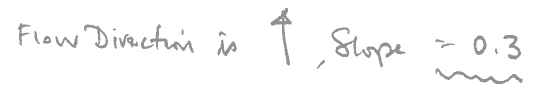 Flow Direction is ↑, Slope = 0.3